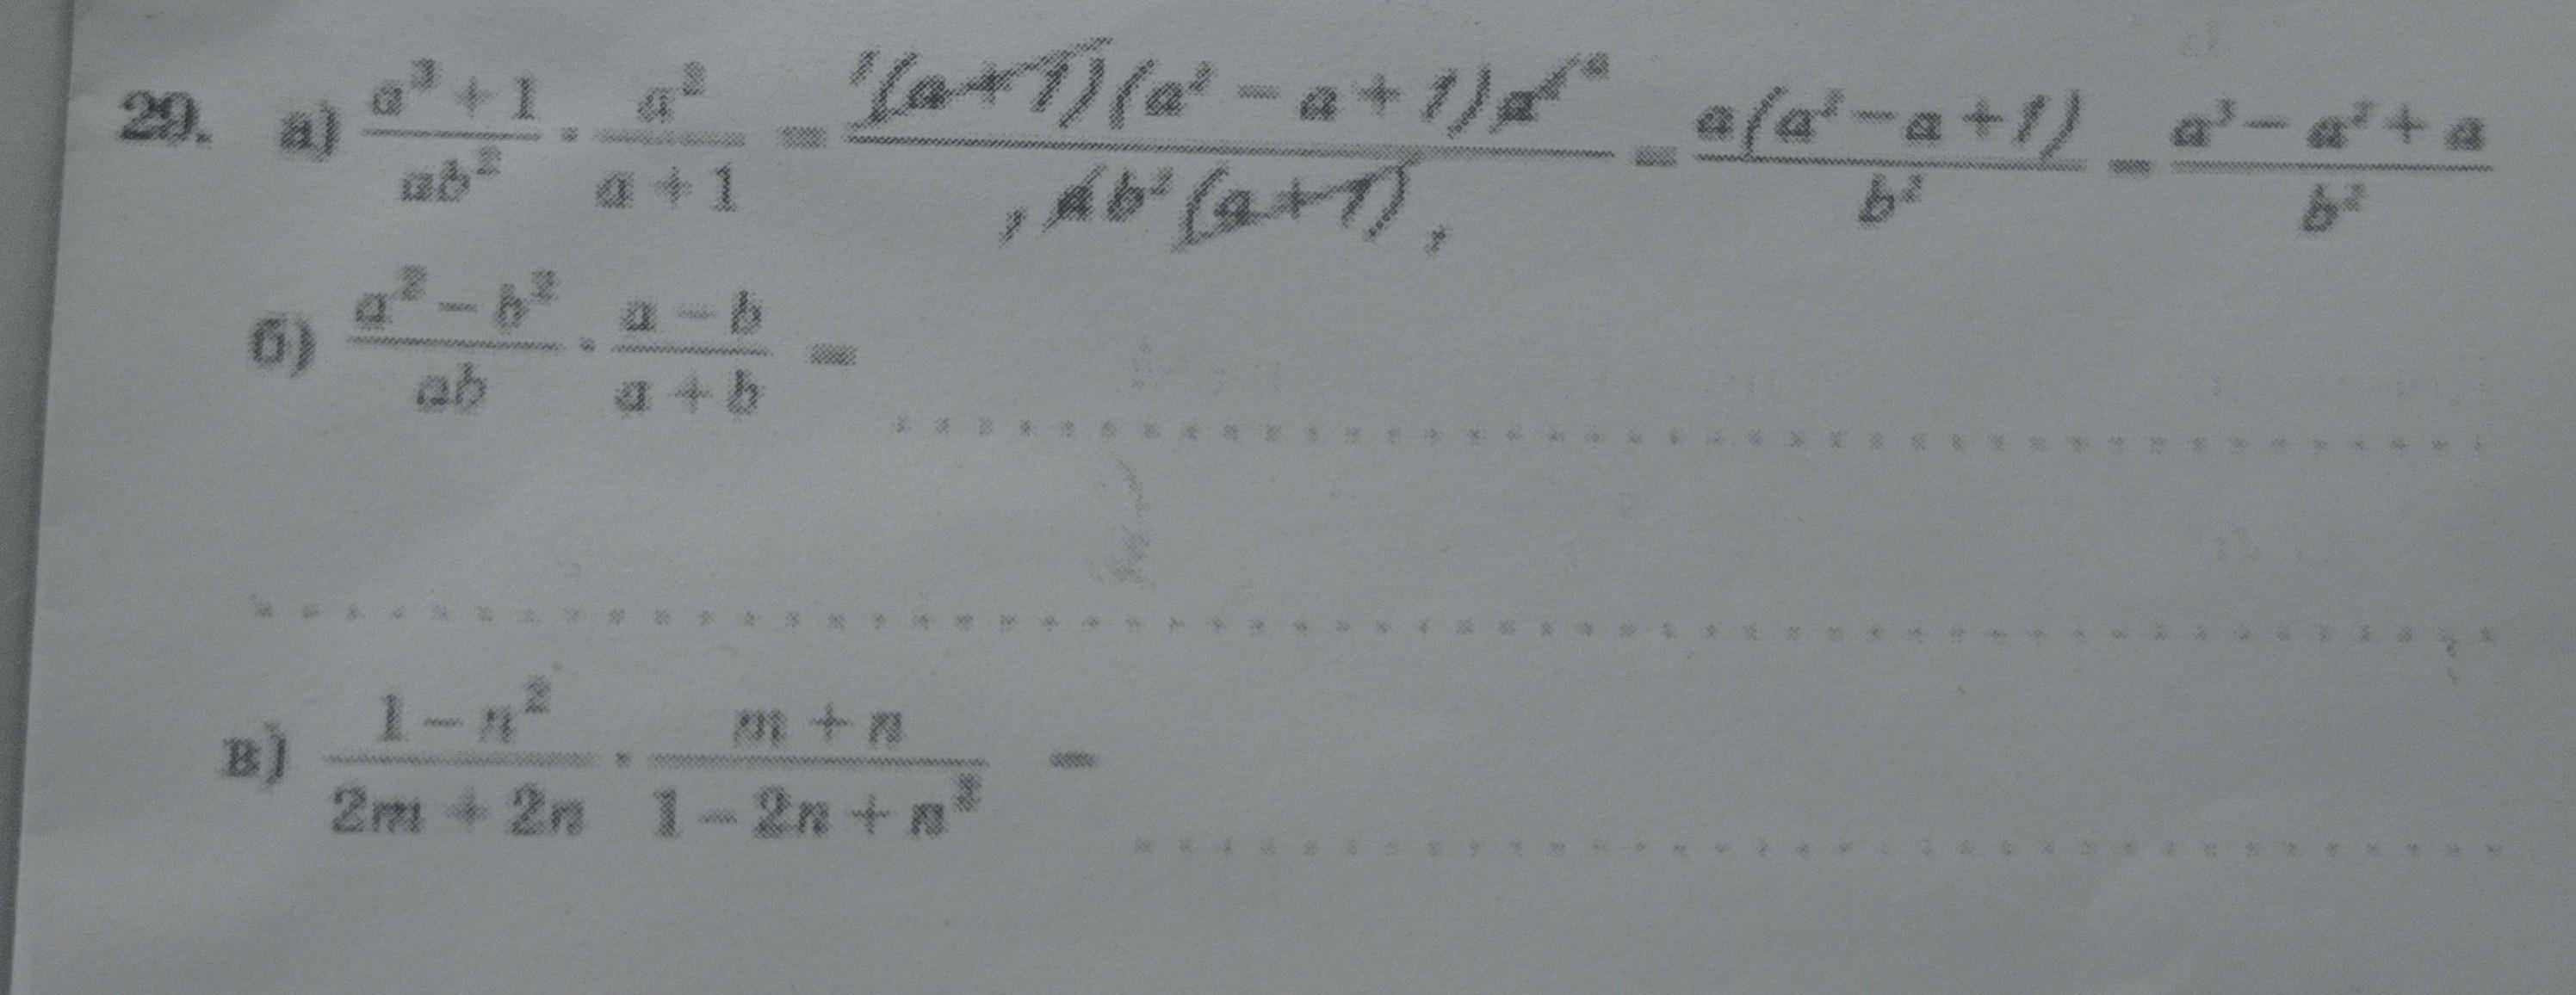 29. а) (a³ + 1)/(ab²) · a²/(a + 1) = ((a + 1)(a² − a + 1)a²)/(ab²(a + 1)) = (a(a² − a + 1))/b² = (a³ − a² + a)/b²
б) (a² − b²)/(ab) · (a − b)/(a + b) =
в) (1 − n²)/(2m + 2n) · (m + n)/(1 − 2n + n²) =